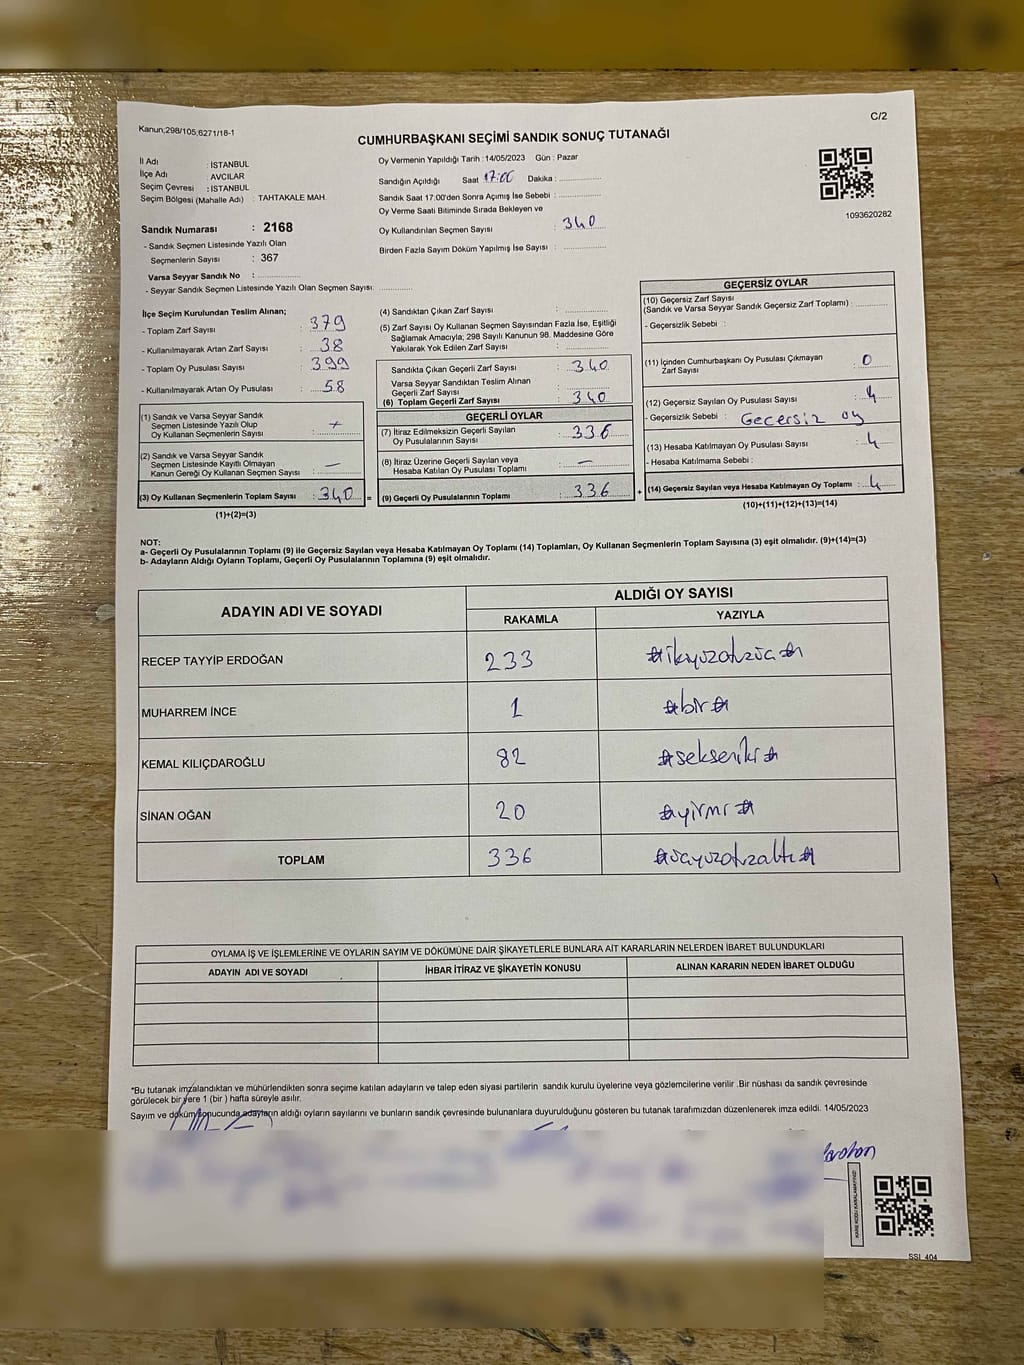 Kanun;298/105;6271/18-1
C/2
CUMHURBAŞKANI SEÇİMİ SANDIK SONUÇ TUTANAĞI
İl Adı : İSTANBUL
İlçe Adı : AVCILAR
Seçim Çevresi : İSTANBUL
Seçim Bölgesi (Mahalle Adı) : TAHTAKALE MAH.
Sandık Numarası : 2168
- Sandık Seçmen Listesinde Yazılı Olan
Seçmenlerin Sayısı : 367
Varsa Seyyar Sandık No :
- Seyyar Sandık Seçmen Listesinde Yazılı Olan Seçmen Sayısı:
Oy Vermenin Yapıldığı Tarih : 14/05/2023 Gün : Pazar
Sandığın Açıldığı Saat 17:00 Dakika :
Sandık Saat 17:00'den Sonra Açımış İse Sebebi :
Oy Verme Saati Bitiminde Sırada Bekleyen ve
Oy Kullandırılan Seçmen Sayısı : 340
Birden Fazla Sayım Döküm Yapılmış İse Sayısı :
1093620282
İlçe Seçim Kurulundan Teslim Alınan;
- Toplam Zarf Sayısı : 379
- Kullanılmayarak Artan Zarf Sayısı : 38
- Toplam Oy Pusulası Sayısı : 399
- Kullanılmayarak Artan Oy Pusulası : 58
(1) Sandık ve Varsa Seyyar Sandık
Seçmen Listesinde Yazılı Olup
Oy Kullanan Seçmenlerin Sayısı :
(2) Sandık ve Varsa Seyyar Sandık
Seçmen Listesinde Kayıtlı Olmayan
Kanun Gereği Oy Kullanan Seçmen Sayısı : —
(3) Oy Kullanan Seçmenlerin Toplam Sayısı : 340 =
(1)+(2)=(3)
(4) Sandıktan Çıkan Zarf Sayısı :
(5) Zarf Sayısı Oy Kullanan Seçmen Sayısından Fazla İse, Eşitliği
Sağlamak Amacıyla; 298 Sayılı Kanunun 98. Maddesine Göre
Yakılarak Yok Edilen Zarf Sayısı :
Sandıkta Çıkan Geçerli Zarf Sayısı : 340
Varsa Seyyar Sandıktan Teslim Alınan
Geçerli Zarf Sayısı :
(6) Toplam Geçerli Zarf Sayısı : 340
GEÇERLİ OYLAR
(7) İtiraz Edilmeksizin Geçerli Sayılan
Oy Pusulalarının Sayısı : 336
(8) İtiraz Üzerine Geçerli Sayılan veya
Hesaba Katılan Oy Pusulası Toplamı : —
(9) Geçerli Oy Pusulalarının Toplamı : 336 +
GEÇERSİZ OYLAR
(10) Geçersiz Zarf Sayısı
(Sandık ve Varsa Seyyar Sandık Geçersiz Zarf Toplamı) :
- Geçersizlik Sebebi :
(11) İçinden Cumhurbaşkanı Oy Pusulası Çıkmayan
Zarf Sayısı : 0
(12) Geçersiz Sayılan Oy Pusulası Sayısı : 4
- Geçersizlik Sebebi : Geçersiz oy
(13) Hesaba Katılmayan Oy Pusulası Sayısı : 4
- Hesaba Katılmama Sebebi :
(14) Geçersiz Sayılan veya Hesaba Katılmayan Oy Toplamı : 4
(10)+(11)+(12)+(13)=(14)
NOT:
a- Geçerli Oy Pusulalarının Toplamı (9) ile Geçersiz Sayılan veya Hesaba Katılmayan Oy Toplamı (14) Toplamları, Oy Kullanan Seçmenlerin Toplam Sayısına (3) eşit olmalıdır. (9)+(14)=(3)
b- Adayların Aldığı Oyların Toplamı, Geçerli Oy Pusulalarının Toplamına (9) eşit olmalıdır.
ADAYIN ADI VE SOYADI
ALDIĞI OY SAYISI
RAKAMLA YAZIYLA
RECEP TAYYİP ERDOĞAN 233 #ikiyüzotuzüç#
MUHARREM İNCE 1 #bir#
KEMAL KILIÇDAROĞLU 82 #seksеniki#
SİNAN OĞAN 20 #yirmi#
TOPLAM 336 #üçyüzotuzaltı#
OYLAMA İŞ VE İŞLEMLERİNE VE OYLARIN SAYIM VE DÖKÜMÜNE DAİR ŞİKAYETLERLE BUNLARA AİT KARARLARIN NELERDEN İBARET BULUNDUKLARI
ADAYIN ADI VE SOYADI İHBAR İTİRAZ VE ŞİKAYETİN KONUSU ALINAN KARARIN NEDEN İBARET OLDUĞU
*Bu tutanak imzalandıktan ve mühürlendikten sonra seçime katılan adayların ve talep eden siyasi partilerin sandık kurulu üyelerine veya gözlemcilerine verilir .Bir nüshası da sandık çevresinde
görülecek bir yere 1 (bir ) hafta süreyle asılır.
Sayım ve döküm sonucunda adayların aldığı oyların sayılarını ve bunların sandık çevresinde bulunanlara duyurulduğunu gösteren bu tutanak tarafımızdan düzenlenerek imza edildi. 14/05/2023
KARE KODU KARALAMAYINIZ!
SSI_404